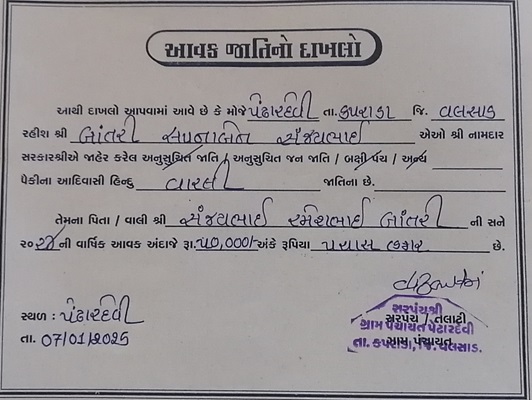 આવક જાતિનો દાખલો
આથી દાખલો આપવામાં આવે છે કે મોજે પંઢારદેવી તા. કપરાડા જિ. વલસાડ
રહીશ શ્રી બાંતરી સપનાબેન સંજયભાઈ એઓ શ્રી નામદાર
સરકારશ્રીએ જાહેર કરેલ અનુસુચિત જાતિ / અનુસુચિત જન જાતિ / બક્ષી પંચ / અન્ય
પૈકીના આદિવાસી હિન્દુ વારલી જાતિના છે.
તેમના પિતા / વાલી શ્રી સંજયભાઈ રમેશભાઈ બાંતરી ની સને
૨૦૨૪ ની વાર્ષિક આવક અંદાજે રૂા. ૫૦,000/- અંકે રૂપિયા પચાસ હજાર છે.
સ્થળ : પંઢારદેવી
તા. 07/01/2025
સરપંચશ્રી
સરપંચ / તલાટી
ગ્રામ પંચાયત પેંઢારદેવી
ગ્રામ પંચાયત
તા. કપરાડા, જિ. વલસાડ.